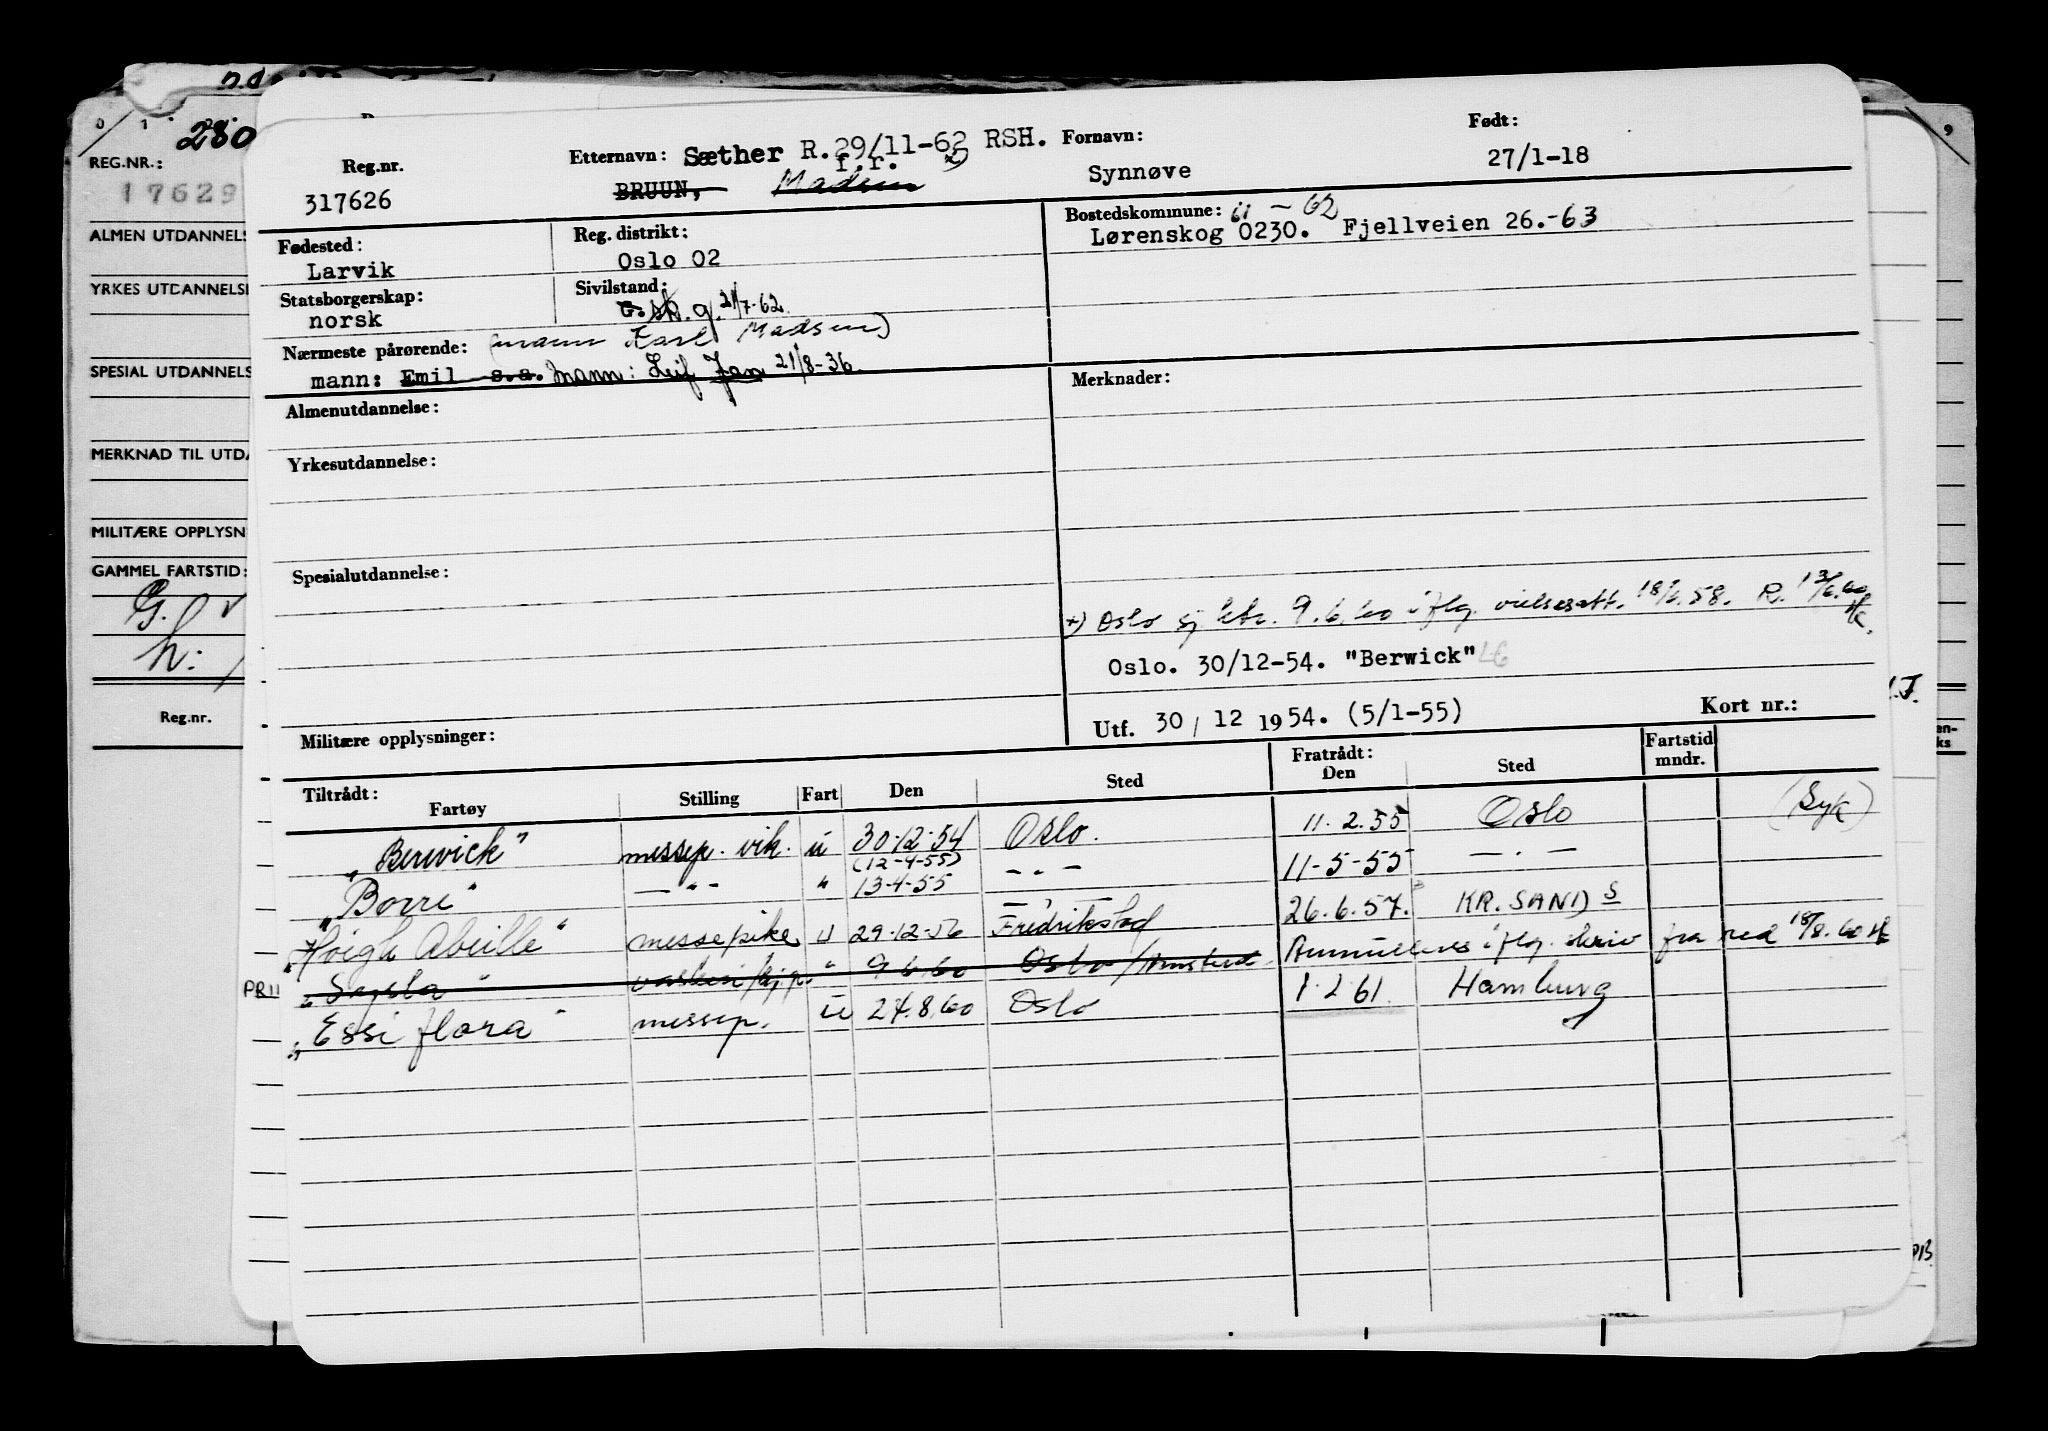 280
REG.NR.:
17629
ALMEN UTDANNELS
YRKES UTDANNELSE
SPESIAL UTDANNELS
MERKNAD TIL UTDA
MILITÆRE OPPLYSN
GAMMEL FARTSTID:
G.
h:
Reg.nr.
Reg.nr. Etternavn: Sæther R.29/11-62 RSH. Fornavn: Født:
317626 BRUUN, f.r. Madsen x) Synnøve 27/1-18
Fødested: Reg. distrikt: Bostedskommune: 11 - 62
Larvik Oslo 02 Lørenskog 0230. Fjellveien 26.-63
Statsborgerskap: Sivilstand:
norsk G. sk. g. 21/7-62.
Nærmeste pårørende: (mann Karl Madsen)
mann: Emil s.a. mann: Leif Jan 21/8-36.
Almenutdannelse: Merknader:
Yrkesutdannelse:
Spesialutdannelse:
x) Oslo sj ktr. 9.6.60 iflg. vielsesatt. 18/ 58. R. 13/6.60
Oslo. 30/12-54. "Berwick" LG
Utf. 30 / 12 1954. (5/1-55) Kort nr.:
Militære opplysninger:
Tiltrådt: Fratrådt: Fartstid mndr.
Fartøy Stilling Fart Den Sted Den Sted
"Berwick" messep. vik. u 30-12-54 Oslo. 11.2.55 Oslo (Syk)
(12-4-55)
"Borre" — " — " 13-4-55 — " — 11-5-55 — " —
"Høigh Abeille" messepike u 29-12-56 Fredrikstad 26.6.57. KR. SAND S
PR11 " " 9.6.60 Oslo / Annulleres iflg. skriv fra red 18/8.60
"Essi flora" messep. u 24.8.60 Oslo 1.2 61. Hamburg